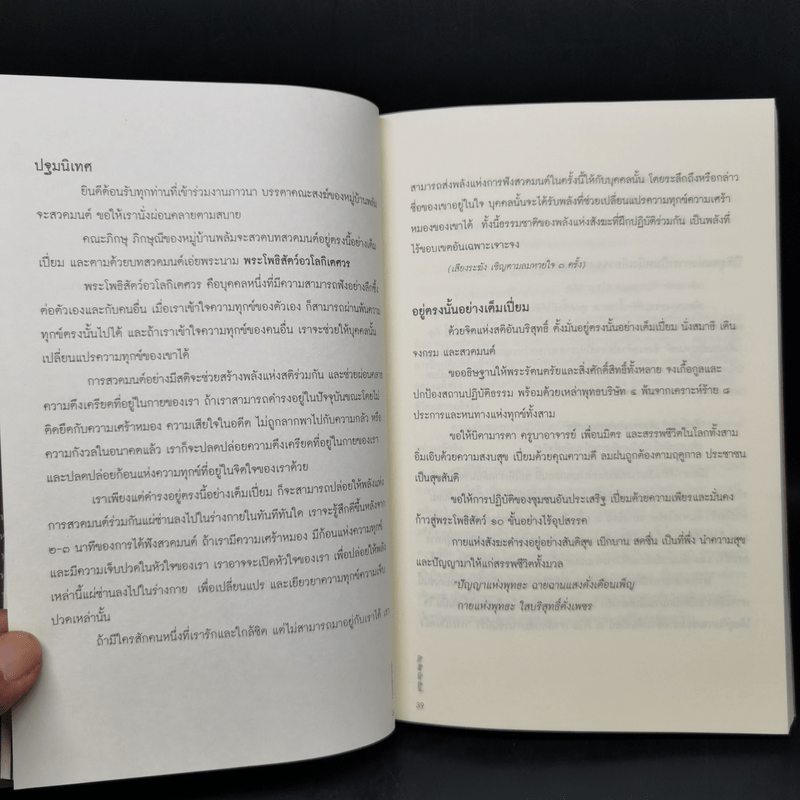 ปฐมนิเทศ
ยินดีต้อนรับทุกท่านที่เข้าร่วมงานภาวนา บรรดาคณะสงฆ์ของหมู่บ้านพลัม
จะสวดมนต์ ขอให้เรานั่งผ่อนคลายตามสบาย
คณะภิกษุ ภิกษุณีของหมู่บ้านพลัมจะสวดบทสวดมนต์อยู่ตรงนี้อย่างเต็ม
เปี่ยม และตามด้วยบทสวดมนต์เอ่ยพระนาม พระโพธิสัตว์อวโลกิเตศวร
พระโพธิสัตว์อวโลกิเตศวร คือบุคคลหนึ่งที่มีความสามารถฟังอย่างลึกซึ้ง
ต่อตัวเองและกับคนอื่น เมื่อเราเข้าใจความทุกข์ของตัวเอง ก็สามารถผ่านพ้นความ
ทุกข์ตรงนั้นไปได้ และถ้าเราเข้าใจความทุกข์ของคนอื่น เราจะช่วยให้บุคคลนั้น
เปลี่ยนแปรความทุกข์ของเขาได้
การสวดมนต์อย่างมีสติจะช่วยสร้างพลังแห่งสติร่วมกัน และช่วยผ่อนคลาย
ความตึงเครียดที่อยู่ในกายของเรา ถ้าเราสามารถดำรงอยู่ในปัจจุบันขณะโดยไม่
ติดยึดกับความเศร้าหมอง ความเสียใจในอดีต ไม่ถูกลากพาไปกับความกลัว หรือ
ความกังวลในอนาคตแล้ว เราก็จะปลดปล่อยความตึงเครียดที่อยู่ในกายของเรา
และปลดปล่อยก้อนแห่งความทุกข์ที่อยู่ในจิตใจของเราด้วย
เราเพียงแต่ดำรงอยู่ตรงนี้อย่างเต็มเปี่ยม ก็จะสามารถปล่อยให้พลังแห่ง
การสวดมนต์ร่วมกันแผ่ซ่านลงไปในร่างกายในทันทีทันใด เราจะรู้สึกดีขึ้นหลังจาก
๒-๓ นาทีของการได้ฟังสวดมนต์ ถ้าเรามีความเศร้าหมอง มีก้อนแห่งความทุกข์
และมีความเจ็บปวดในหัวใจของเรา เราอาจจะเปิดหัวใจของเรา เพื่อปล่อยให้พลัง
เหล่านี้แผ่ซ่านลงไปในร่างกาย เพื่อเปลี่ยนแปร และเยียวยาความทุกข์ความเจ็บ
ปวดเหล่านั้น
ถ้ามีใครสักคนหนึ่งที่เรารักและใกล้ชิด แต่ไม่สามารถมาอยู่กับเราได้ เรา
สามารถส่งพลังแห่งการฟังสวดมนต์ในครั้งนี้ให้กับบุคคลนั้น โดยระลึกถึงหรือกล่าว
ชื่อของเขาอยู่ในใจ บุคคลนั้นจะได้รับพลังที่ช่วยเปลี่ยนแปรความทุกข์ความเศร้า
หมองของเขาได้ ทั้งนี้ธรรมชาติของพลังแห่งสังฆะที่ฝึกปฏิบัติร่วมกัน เป็นพลังที่
ไร้ขอบเขตอันเฉพาะเจาะจง
(เสียงระฆัง เชิญตามลมหายใจ ๓ ครั้ง)
อยู่ตรงนั้นอย่างเต็มเปี่ยม
ด้วยจิตแห่งสติอันบริสุทธิ์ ตั้งมั่นอยู่ตรงนั้นอย่างเต็มเปี่ยม นั่งสมาธิ เดิน
จงกรม และสวดมนต์
ขออธิษฐานให้พระรัตนตรัยและสิ่งศักดิ์สิทธิ์ทั้งหลาย จงเกื้อกูลและ
ปกป้องสถานปฏิบัติธรรม พร้อมด้วยเหล่าพุทธบริษัท ๔ พ้นจากเคราะห์ร้าย ๘
ประการและหนทางแห่งทุกข์ทั้งสาม
ขอให้บิดามารดา ครูบาอาจารย์ เพื่อนมิตร และสรรพชีวิตในโลกทั้งสาม
อิ่มเอิบด้วยความสงบสุข เปี่ยมด้วยคุณความดี ลมฝนถูกต้องตามฤดูกาล ประชาชน
เป็นสุขสันติ
ขอให้การปฏิบัติของชุมชนอันประเสริฐ เปี่ยมด้วยความเพียรและมั่นคง
ก้าวสู่พระโพธิสัตว์ ๑๐ ขั้นอย่างไร้อุปสรรค
กายแห่งสังฆะดำรงอยู่อย่างสันติสุข เบิกบาน สดชื่น เป็นที่พึ่ง นำความสุข
และปัญญามาให้แก่สรรพชีวิตทั้งมวล
"ปัญญาแห่งพุทธะ ฉายฉานแสงดั่งเดือนเพ็ญ
กายแห่งพุทธะ ใสบริสุทธิ์ดั่งเพชร